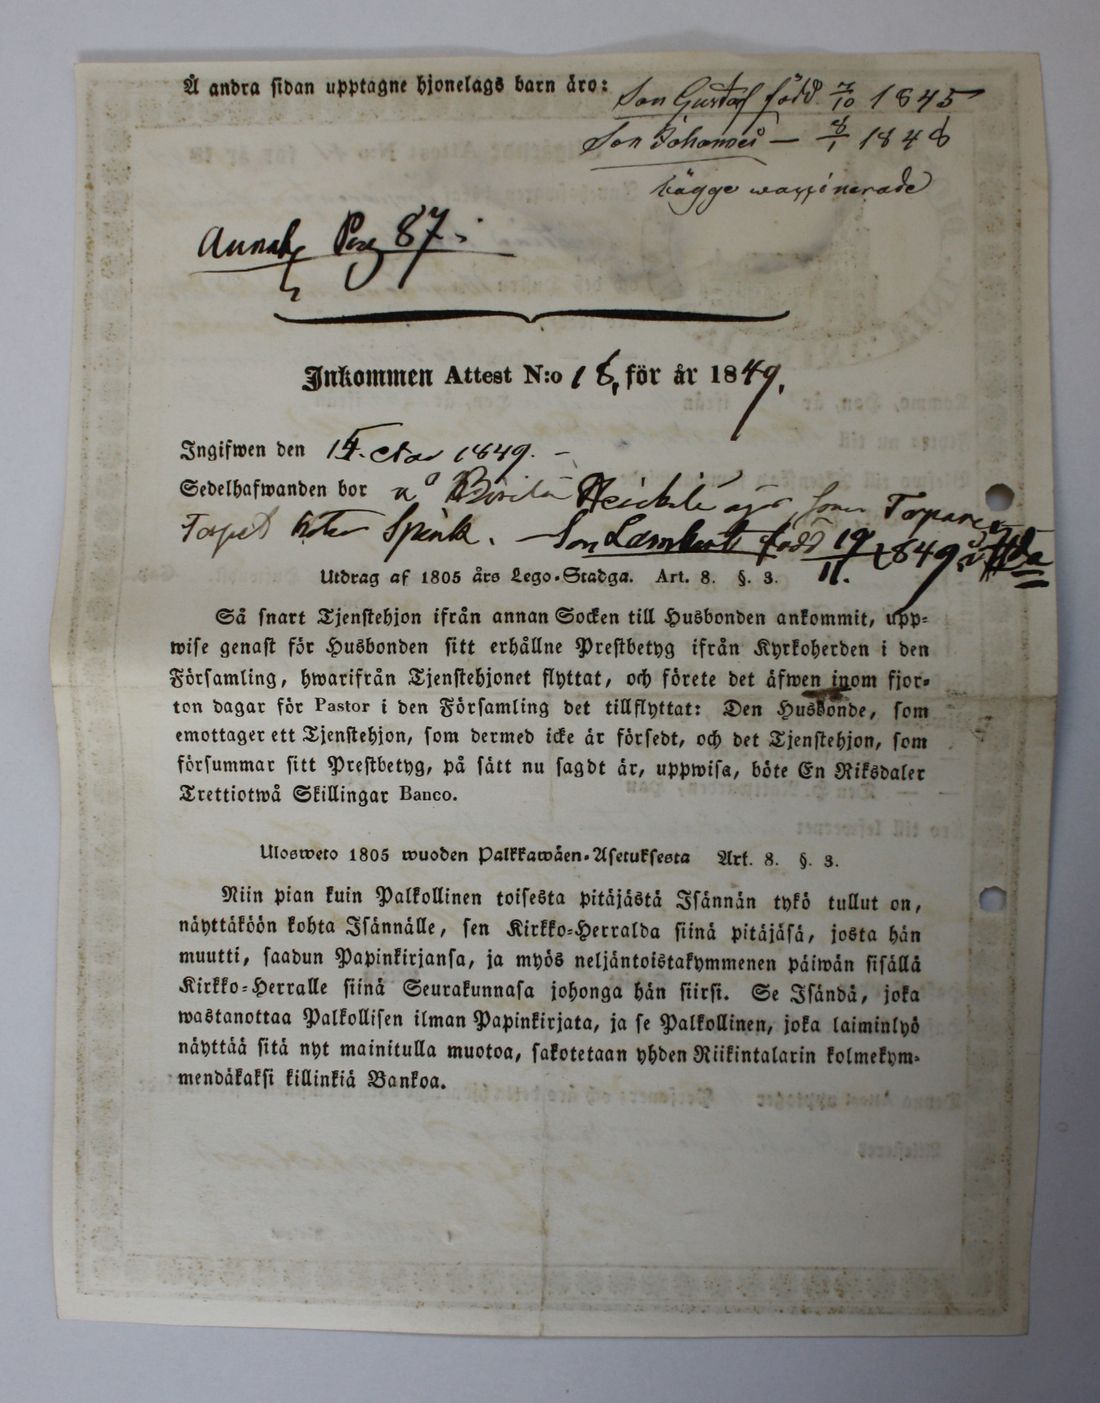 Å andra sidan upptagne hjonelags barn äro:
Son Gustaf född 7/10 1845
Son Johannes — 1848
bägge waxinerade
Pag 87
Inkommen Attest N:o 18, för år 1849.
Ingifwen den 15 1849. –
Sedelhafwanden bor å som Torpare
Torpet Spink. — Son född 19/11. 1849
Utdrag af 1805 års Lego-Stadga. Art. 8. §. 3.
Så snart Tjenstehjon ifrån annan Socken till Husbonden ankommit, upp-
wise genast för Husbonden sitt erhållne Prestbetyg ifrån Kyrkoherden i den
Församling, hwarifrån Tjenstehjonet flyttat, och förete det äfwen inom fjor-
ton dagar för Pastor i den Församling det tillflyttat: Den Husbonde, som
emottager ett Tjenstehjon, som dermed icke är försedt, och det Tjenstehjon, som
försummar sitt Prestbetyg, på sätt nu sagdt är, uppwisa, böte En Riksdaler
Trettiotwå Skillingar Banco.
Ulosweto 1805 wuoden Palkkawäen-Asetuksesta Art. 8. §. 3.
Niin pian kuin Palkollinen toisesta pitäjästä Isännän tykö tullut on,
näyttäköön kohta Isännälle, sen Kirkko-Herralda siinä pitäjäsä, josta hän
muutti, saadun Papinkirjansa, ja myös neljäntoistakymmenen päiwän sisällä
Kirkko-Herralle siinä Seurakunnasa johonga hän siirsi. Se Isändä, joka
wastanottaa Palkollisen ilman Papinkirjata, ja se Palkollinen, joka laiminlyö
näyttää sitä nyt mainitulla muotoa, sakotetaan yhden Riikintalarin kolmekym-
mendäkaksi killinkiä Bankoa.